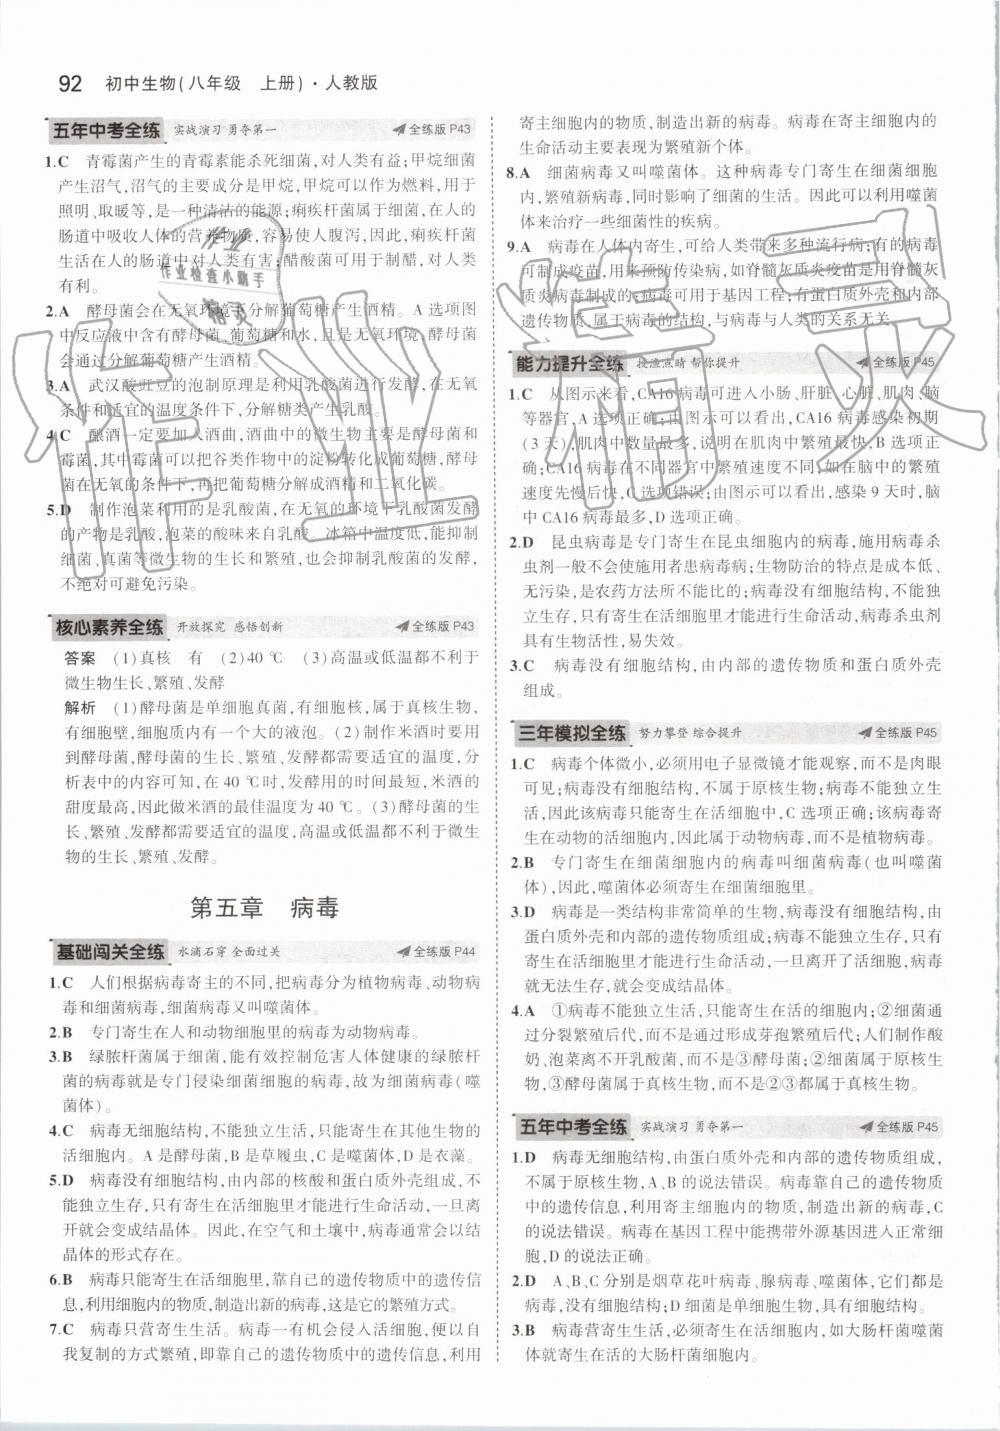 92 初中生物(八年级 上册)·人教版
五年中考全练 实战演习 勇夺第一 全练版 P43
1.C 青霉菌产生的青霉素能杀死细菌,对人类有益;甲烷细菌
产生沼气,沼气的主要成分是甲烷,甲烷可以作为燃料,用于
照明、取暖等,是一种清洁的能源;痢疾杆菌属于细菌,在人的
肠道中吸收人体的营养物质,容易使人腹泻,因此,痢疾杆菌
生活在人的肠道中对人类有害;醋酸菌可用于制醋,对人类
有利。
2.A 酵母菌会在无氧环境下分解葡萄糖产生酒精。A 选项图
中反应液中含有酵母菌、葡萄糖和水,且是无氧环境,酵母菌
会通过分解葡萄糖产生酒精。
3.A 武汉酸豇豆的泡制原理是利用乳酸菌进行发酵,在无氧
条件和适宜的温度条件下,分解糖类产生乳酸。
4.C 酿酒一定要加入酒曲,酒曲中的微生物主要是酵母菌和
霉菌,其中霉菌可以把谷类作物中的淀粉转化成葡萄糖,酵母
菌在无氧的条件下,再将葡萄糖分解成酒精和二氧化碳。
5.D 制作泡菜利用的是乳酸菌,在无氧的环境下乳酸菌发酵
的产物是乳酸,泡菜的酸味来自乳酸。冰箱中温度低,能抑制
细菌、真菌等微生物的生长和繁殖,也会抑制乳酸菌的发酵,
不绝对可避免污染。
核心素养全练 开放探究 感悟创新 全练版 P43
答案 (1)真核 有 (2)40 ℃ (3)高温或低温都不利于
微生物生长、繁殖、发酵
解析 (1)酵母菌是单细胞真菌,有细胞核,属于真核生物,
有细胞壁,细胞质内有一个大的液泡。(2)制作米酒时要用
到酵母菌,酵母菌的生长、繁殖、发酵都需要适宜的温度,分
析表中的内容可知,在 40 ℃时,发酵用的时间最短,米酒的
甜度最高,因此做米酒的最佳温度为 40 ℃。(3)酵母菌的生
长、繁殖、发酵都需要适宜的温度,高温或低温都不利于微生
物的生长、繁殖、发酵。
第五章 病毒
基础闯关全练 水滴石穿 全面过关 全练版 P44
1.C 人们根据病毒寄主的不同,把病毒分为植物病毒、动物病
毒和细菌病毒,细菌病毒又叫噬菌体。
2.B 专门寄生在人和动物细胞里的病毒为动物病毒。
3.B 绿脓杆菌属于细菌,能有效控制危害人体健康的绿脓杆
菌的病毒就是专门侵染细菌细胞的病毒,故为细菌病毒(噬
菌体)。
4.C 病毒无细胞结构,不能独立生活,只有寄生在其他生物的
活细胞内。A 是酵母菌,B 是草履虫,C 是病毒,D 是衣藻。
5.D 病毒没有细胞结构,由内部的核酸和蛋白质外壳组成,不
能独立生存,只有寄生在活细胞里才能进行生命活动,一旦离
开就会变成结晶体。因此,在空气和土壤中,病毒通常会以结
晶体的形式存在。
6.B 病毒只能寄生在活细胞里,靠自己的遗传物质中的遗传信
息,利用细胞内的物质,制造出新的病毒,这是它的繁殖方式。
7.C 病毒只营寄生生活。病毒一有机会侵入活细胞,便以自
我复制的方式繁殖,即靠自己的遗传物质中的遗传信息,利用
寄主细胞内的物质,制造出新的病毒。病毒在寄主细胞内的
生命活动主要表现为繁殖新个体。
8.A 细菌病毒又叫噬菌体。这种病毒专门寄生在细菌细胞
内,繁殖新病毒,同时影响了细菌的生活。因此可以利用噬菌
体来治疗一些细菌性的疾病。
9.A 病毒在人体内寄生,可给人类带来多种流行病;有的病毒
可制成疫苗,用来预防传染病,如脊髓灰质炎疫苗是用脊髓灰
质炎病毒制成的;病毒可用于基因工程;有蛋白质外壳和内部
遗传物质,属于病毒的结构,与病毒与人类的关系无关。
能力提升全练 授渔点睛 帮你提升 全练版 P45
1.C 从图示来看,CA16 病毒可进入小肠、肝脏、心脏、肌肉、脑
等器官,A 选项正确;由图示可以看出,CA16 病毒感染初期
(3 天),肌肉中数量最多,说明在肌肉中繁殖最快,B 选项正
确;CA16 病毒在不同器官中繁殖速度不同,如在脑中的繁殖
速度先慢后快,C 选项错误;由图示可以看出,感染 9 天时,脑
中 CA16 病毒最多,D 选项正确。
2.D 昆虫病毒是专门寄生在昆虫细胞内的病毒,施用病毒杀
虫剂一般不会使施用者患病毒病;生物防治的特点是成本低、
无污染,是农药方法所不能比的;病毒没有细胞结构,不能独
立生存,只有寄生在活细胞里才能进行生命活动,病毒杀虫剂
具有生物活性,易失效。
3.C 病毒没有细胞结构,由内部的遗传物质和蛋白质外壳
组成。
三年模拟全练 努力攀登 综合提升 全练版 P45
1.C 病毒个体微小,必须用电子显微镜才能观察,而不是肉眼
可见;病毒没有细胞结构,不属于原核生物;病毒不能独立生
活,因此该病毒只能寄生在活细胞中,C 选项正确;该病毒寄
生在动物的活细胞内,因此属于动物病毒,而不是植物病毒。
2.B 专门寄生在细菌细胞内的病毒叫细菌病毒(也叫噬菌
体),因此,噬菌体必须寄生在细菌细胞里。
3.D 病毒是一类结构非常简单的生物,病毒没有细胞结构,由
蛋白质外壳和内部的遗传物质组成;病毒不能独立生存,只有
寄生在活细胞里才能进行生命活动,一旦离开活细胞,病毒
就无法生存,就会变成结晶体。
4.A ①病毒不能独立生活,只能寄生在活的细胞内;②细菌通
过分裂繁殖后代,而不是通过形成芽孢繁殖后代;人们制作酸
奶、泡菜离不开乳酸菌,而不是③酵母菌;②细菌属于原核生
物,③酵母菌属于真核生物,而不是②③都属于真核生物。
五年中考全练 实战演习 勇夺第一 全练版 P45
1.D 病毒无细胞结构,由蛋白质外壳和内部的遗传物质组成,
不能独立生活,A、B 的说法错误。病毒靠自己的遗传物质
中的遗传信息,利用寄主细胞内的物质,制造出新的病毒,C
的说法错误。病毒在基因工程中能携带外源基因进入正常
细胞,D 的说法正确。
2.D A、B、C 分别是烟草花叶病毒、腺病毒、噬菌体,它们都是
病毒,没有细胞结构;D 细菌是单细胞生物,具有细胞结构。
3.B 病毒营寄生生活,必须寄生在活细胞内,如大肠杆菌噬菌
体就寄生在活的大肠杆菌细胞内。
作业
作业检查小助手
精灵
作业精灵